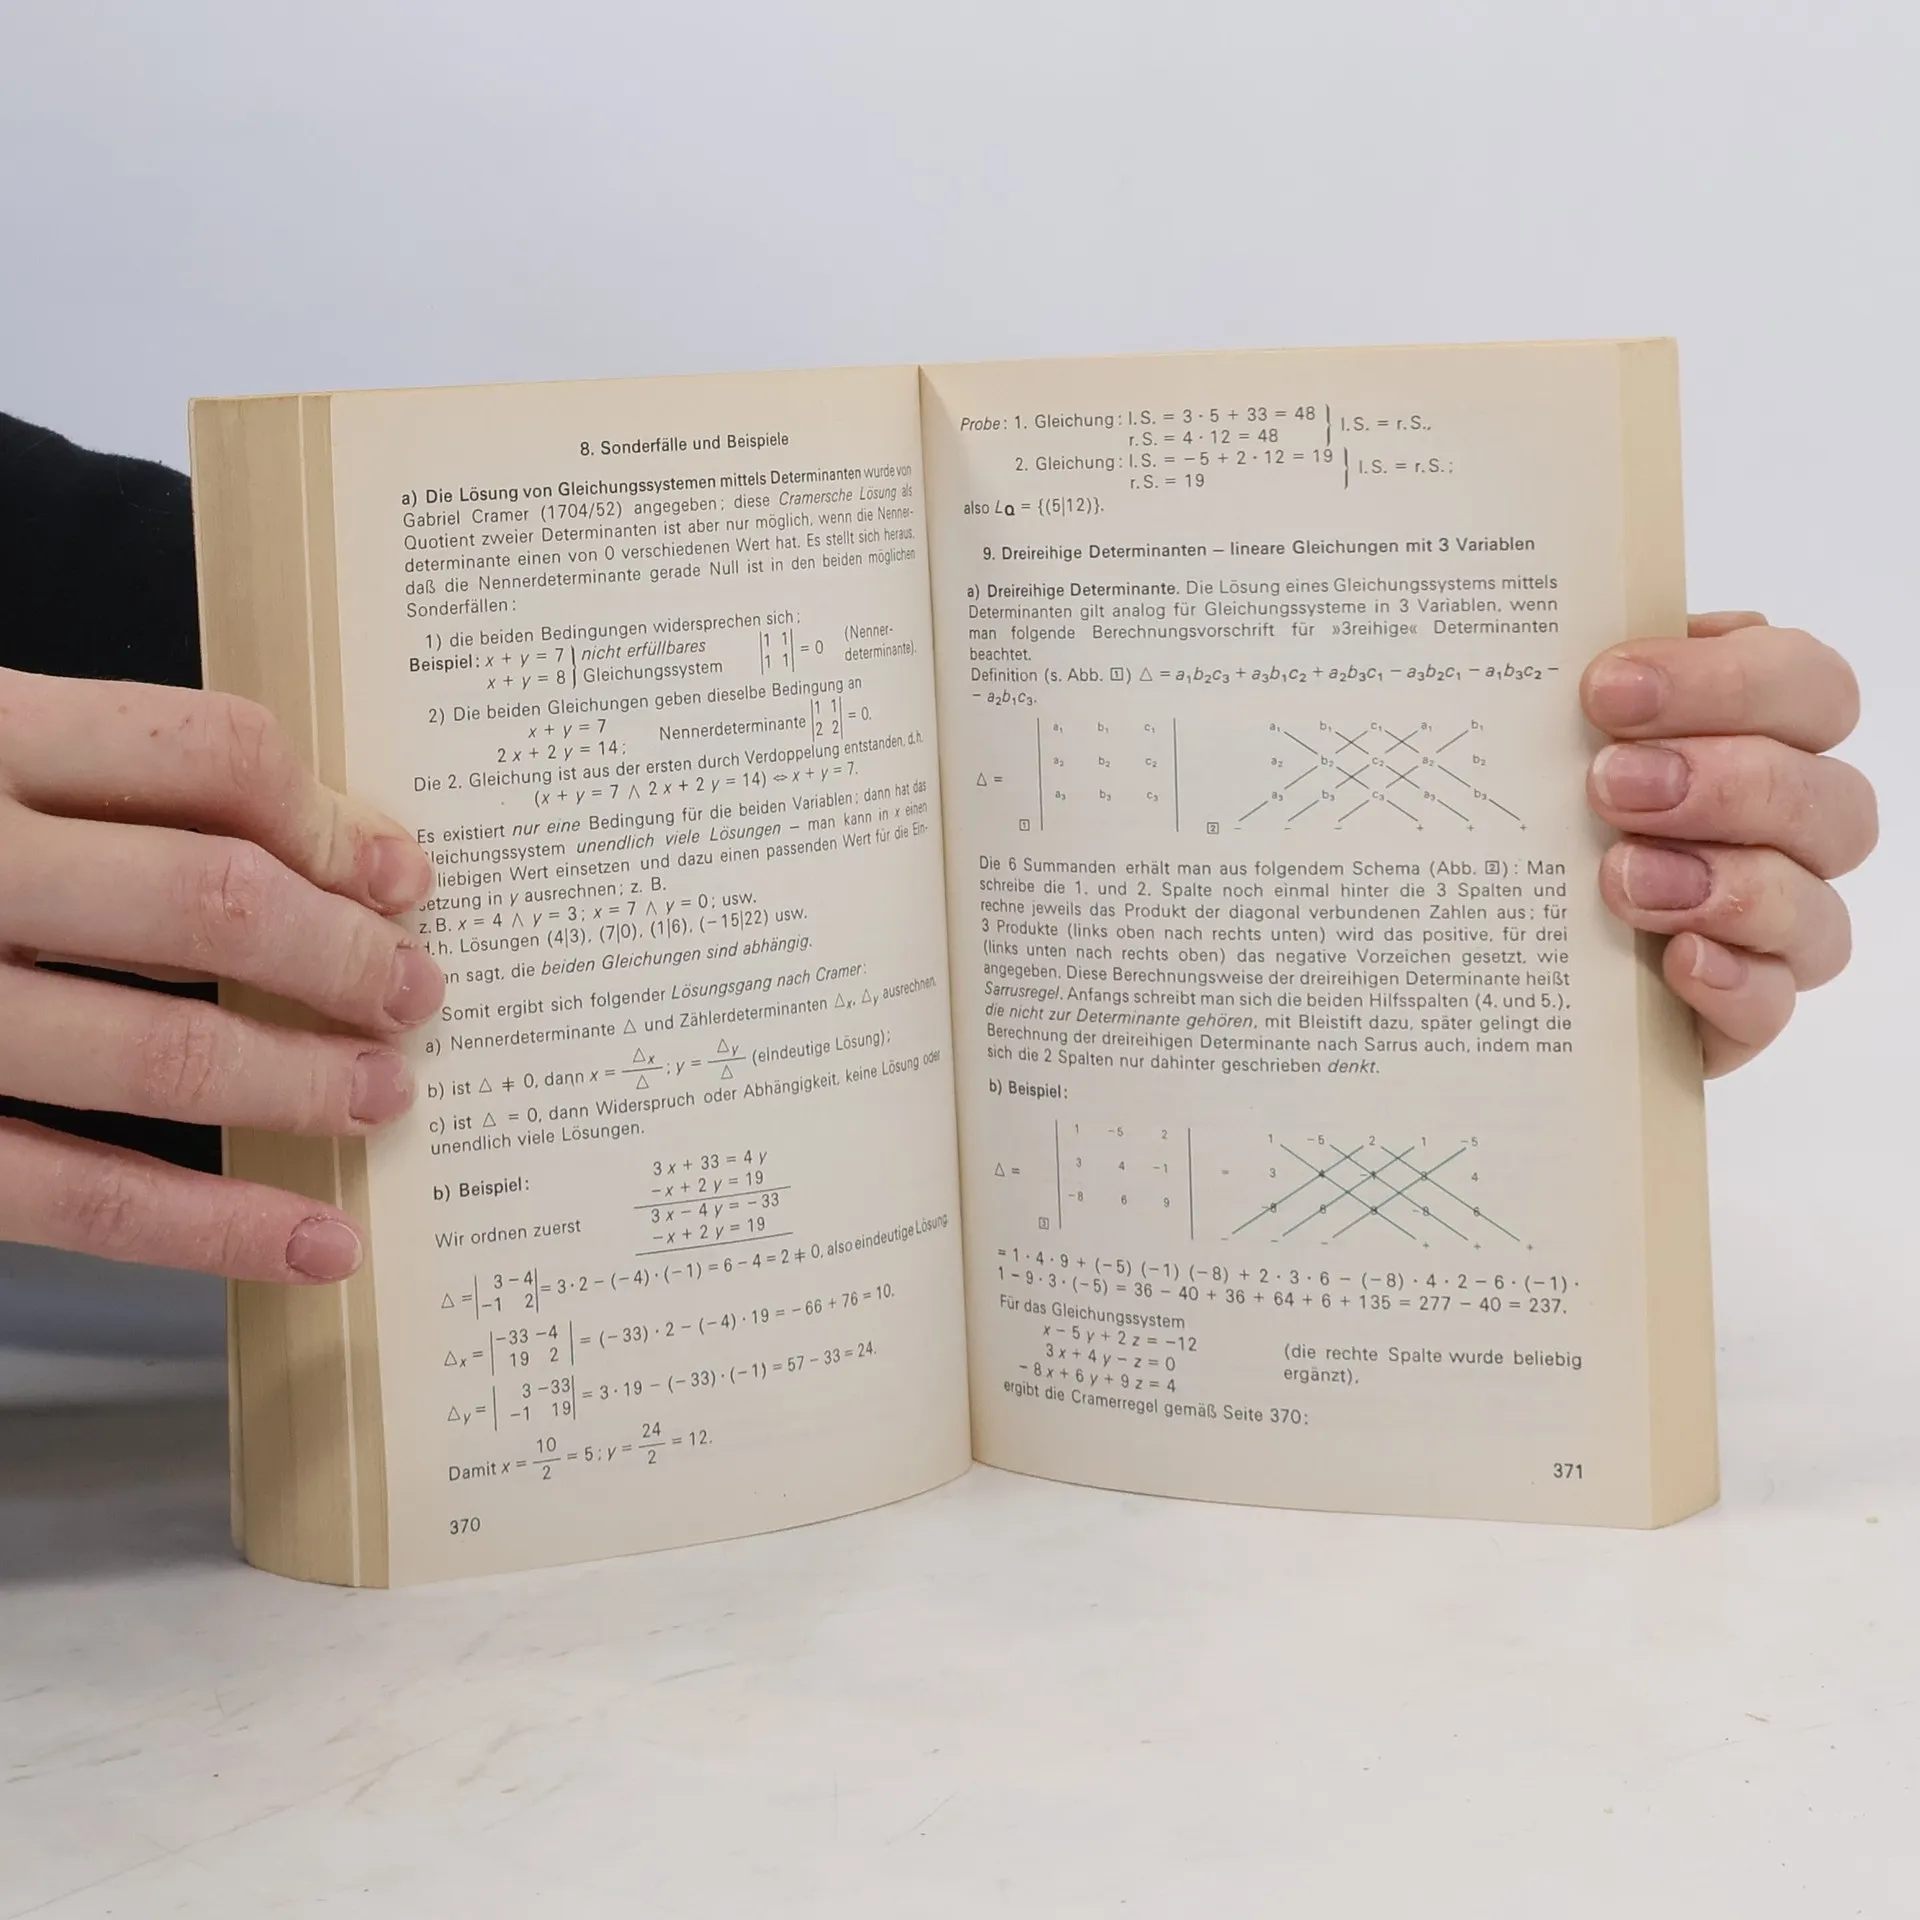 8. Sonderfälle und Beispiele
a) Die Lösung von Gleichungssystemen mittels Determinanten wurde von
Gabriel Cramer (1704/52) angegeben; diese Cramersche Lösung als
Quotient zweier Determinanten ist aber nur möglich, wenn die Nenner-
determinante einen von 0 verschiedenen Wert hat. Es stellt sich heraus,
daß die Nennerdeterminante gerade Null ist in den beiden möglichen
Sonderfällen:
1) die beiden Bedingungen widersprechen sich;
Beispiel: x + y = 7 } nicht erfüllbares |1 1| = 0 (Nenner-
x + y = 8 } Gleichungssystem |1 1| determinante).
2) Die beiden Gleichungen geben dieselbe Bedingung an
x + y = 7 Nennerdeterminante |1 1| = 0.
2 x + 2 y = 14; |2 2|
Die 2. Gleichung ist aus der ersten durch Verdoppelung entstanden, d.h.
(x + y = 7 ∧ 2 x + 2 y = 14) ⇔ x + y = 7.
Es existiert nur eine Bedingung für die beiden Variablen; dann hat das
leichungssystem unendlich viele Lösungen – man kann in x einen
liebigen Wert einsetzen und dazu einen passenden Wert für die Ein-
setzung in y ausrechnen; z. B.
z. B. x = 4 ∧ y = 3; x = 7 ∧ y = 0; usw.
d.h. Lösungen (4|3), (7|0), (1|6), (−15|22) usw.
an sagt, die beiden Gleichungen sind abhängig.
Somit ergibt sich folgender Lösungsgang nach Cramer:
a) Nennerdeterminante △ und Zählerdeterminanten △x, △y ausrechnen
b) ist △ ≠ 0, dann x = △x/△; y = △y/△ (eindeutige Lösung);
c) ist △ = 0, dann Widerspruch oder Abhängigkeit, keine Lösung oder
unendlich viele Lösungen.
b) Beispiel: 3 x + 33 = 4 y
−x + 2 y = 19
Wir ordnen zuerst 3 x − 4 y = −33
−x + 2 y = 19
△ = |3 −4| = 3 · 2 − (−4) · (−1) = 6 − 4 = 2 ≠ 0, also eindeutige Lösung
|−1 2|
△x = |−33 −4| = (−33) · 2 − (−4) · 19 = −66 + 76 = 10.
|19 2|
△y = |3 −33| = 3 · 19 − (−33) · (−1) = 57 − 33 = 24.
|−1 19|
Damit x = 10/2 = 5; y = 24/2 = 12.
370
Probe: 1. Gleichung: l.S. = 3 · 5 + 33 = 48 } l.S. = r.S.,
r.S. = 4 · 12 = 48
2. Gleichung: l.S. = −5 + 2 · 12 = 19 } l.S. = r.S.;
r.S. = 19
also LQ = {(5|12)}.
9. Dreireihige Determinanten – lineare Gleichungen mit 3 Variablen
a) Dreireihige Determinante. Die Lösung eines Gleichungssystems mittels
Determinanten gilt analog für Gleichungssysteme in 3 Variablen, wenn
man folgende Berechnungsvorschrift für »3reihige« Determinanten
beachtet.
Definition (s. Abb. 1) △ = a₁b₂c₃ + a₃b₁c₂ + a₂b₃c₁ − a₃b₂c₁ − a₁b₃c₂ −
− a₂b₁c₃.
a₁ b₁ c₁ a₁ b₁ c₁ a₁ b₁
△ = a₂ b₂ c₂ a₂ b₂ c₂ a₂ b₂
a₃ b₃ c₃ a₃ b₃ c₃ a₃ b₃
1 2 − − − + + +
Die 6 Summanden erhält man aus folgendem Schema (Abb. 2): Man
schreibe die 1. und 2. Spalte noch einmal hinter die 3 Spalten und
rechne jeweils das Produkt der diagonal verbundenen Zahlen aus; für
3 Produkte (links oben nach rechts unten) wird das positive, für drei
(links unten nach rechts oben) das negative Vorzeichen gesetzt, wie
angegeben. Diese Berechnungsweise der dreireihigen Determinante heißt
Sarrusregel. Anfangs schreibt man sich die beiden Hilfsspalten (4. und 5.),
die nicht zur Determinante gehören, mit Bleistift dazu, später gelingt die
Berechnung der dreireihigen Determinante nach Sarrus auch, indem man
sich die 2 Spalten nur dahinter geschrieben denkt.
b) Beispiel:
1 −5 2 1 −5 2 1 −5
△ = 3 4 −1 = 3 4 −1 3 4
−8 6 9 −8 6 9 −8 6
3 − − − + + +
= 1 · 4 · 9 + (−5) (−1) (−8) + 2 · 3 · 6 − (−8) · 4 · 2 − 6 · (−1) ·
1 − 9 · 3 · (−5) = 36 − 40 + 36 + 64 + 6 + 135 = 277 − 40 = 237.
Für das Gleichungssystem
x − 5 y + 2 z = −12
3 x + 4 y − z = 0 (die rechte Spalte wurde beliebig
− 8 x + 6 y + 9 z = 4 ergänzt),
ergibt die Cramerregel gemäß Seite 370:
371